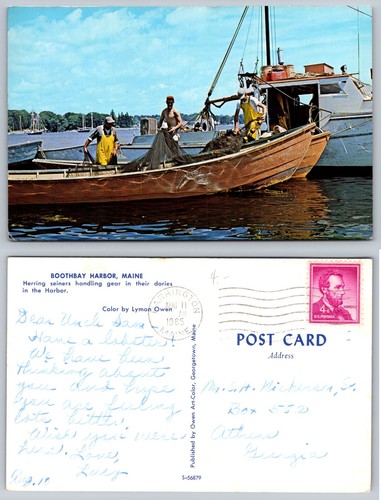 BOOTHBAY HARBOR, MAINE
Herring seiners handling gear in their dories
in the Harbor.
Color by Lyman Owen
Dear Uncle Sam,
Have a lobster!
We have been
thinking about
you and hope
you are feeling
lots better.
Wish you were
here. Love,
Aug. 10 Lucy
Published by Owen Art-Color, Georgetown, Maine
S-56879
1965
MAINE
4¢
U.S. POSTAGE
POST CARD
Address
Mr. S. H. Nickerson, Sr.
Box 552
Athens
Georgia